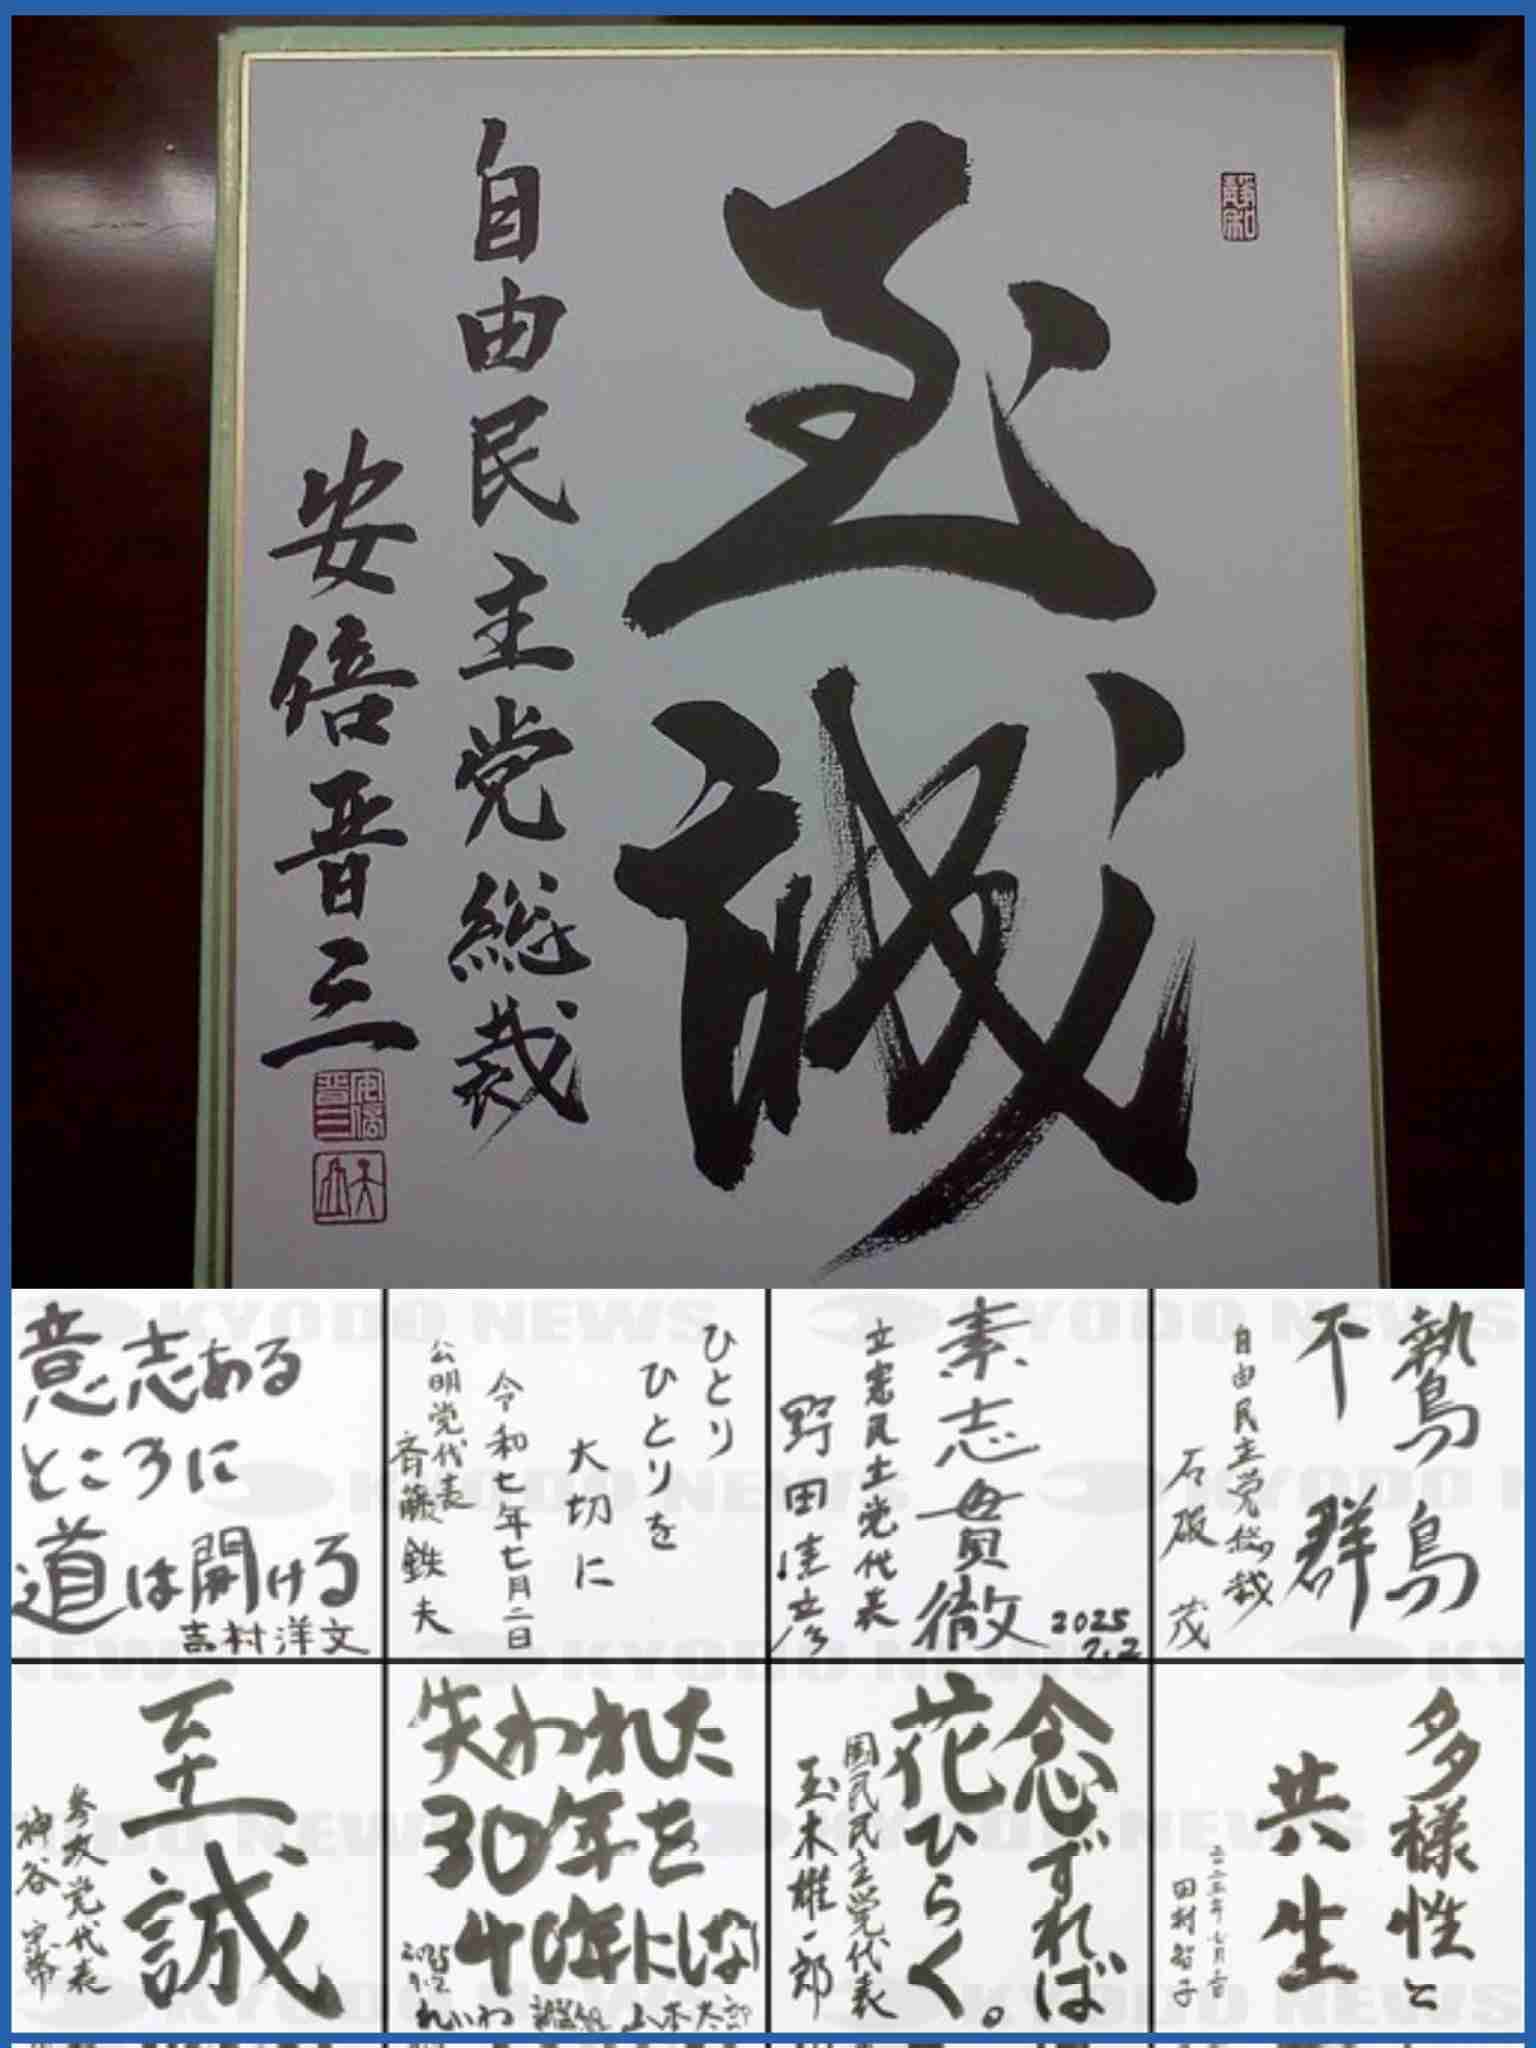 至誠
自由民主党総裁
安倍晋三
鷙鳥
不群
自由民主党総裁
石破 茂
素志貫徹
2025
7.2
立憲民主党代表
野田佳彦
ひとり
ひとりを
大切に
令和七年七月二日
公明党代表
斉藤鉄夫
意志ある
ところに
道は開ける
吉村洋文
多様性と
共生
田村智子
念ずれば
花ひらく。
国民民主党代表
玉木雄一郎
失われた
30年を
40年にしない
2025
7.2
れいわ新選組 山本太郎
至誠
参政党代表
神谷宗幣
KYODO NEWS